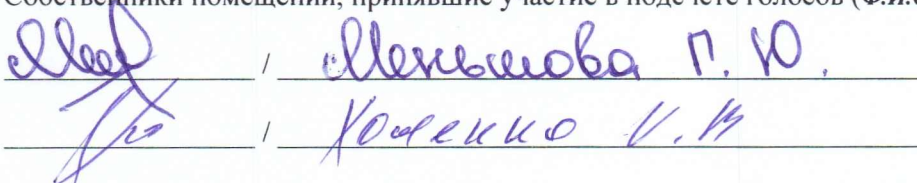 Собственники помещений, принявшие участие в подсчете голосов (Ф.И.О
/ Меньшова Г. Ю.
/ Хоменко